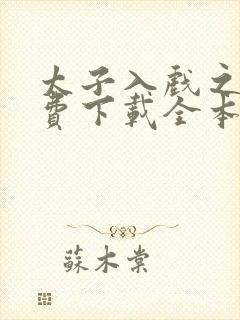 太子入戲之
費下載全本
蘇木棠